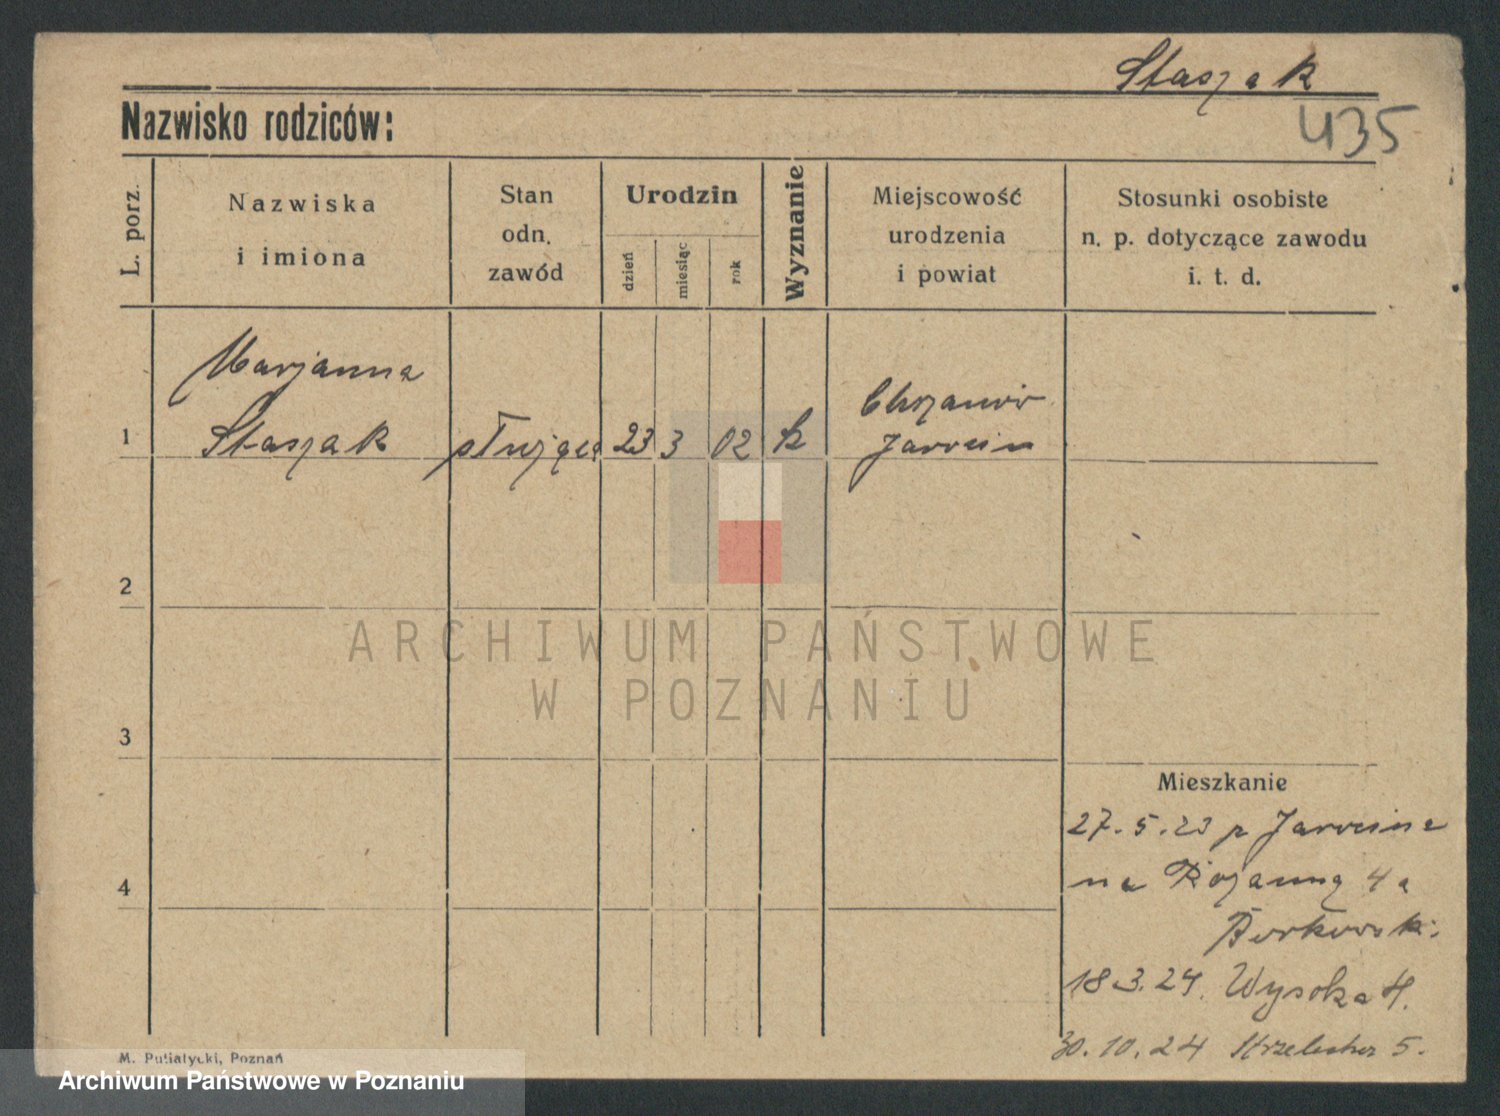 Staszak
435
Nazwisko rodziców:
L. porz.
Nazwiska
i imiona
Stan
odn.
zawód
Urodzin
dzień
miesiąc
rok
Wyznanie
Miejscowość
urodzenia
i powiat
Stosunki osobiste
n. p. dotyczące zawodu
i. t. d.
1
Marjanna
Staszak
służąca
23
3
02
k
Chrzanów
Jarocin
2
ARCHIWUM PAŃSTWOWE
W POZNANIU
3
Mieszkanie
27.5.23 z Jarocina
na Różanną 4a
Borkowski
4
18.3.24. Wysoka 4.
30.10.24 Strzelecka 5.
M. Putiatycki, Poznań
Archiwum Państwowe w Poznaniu